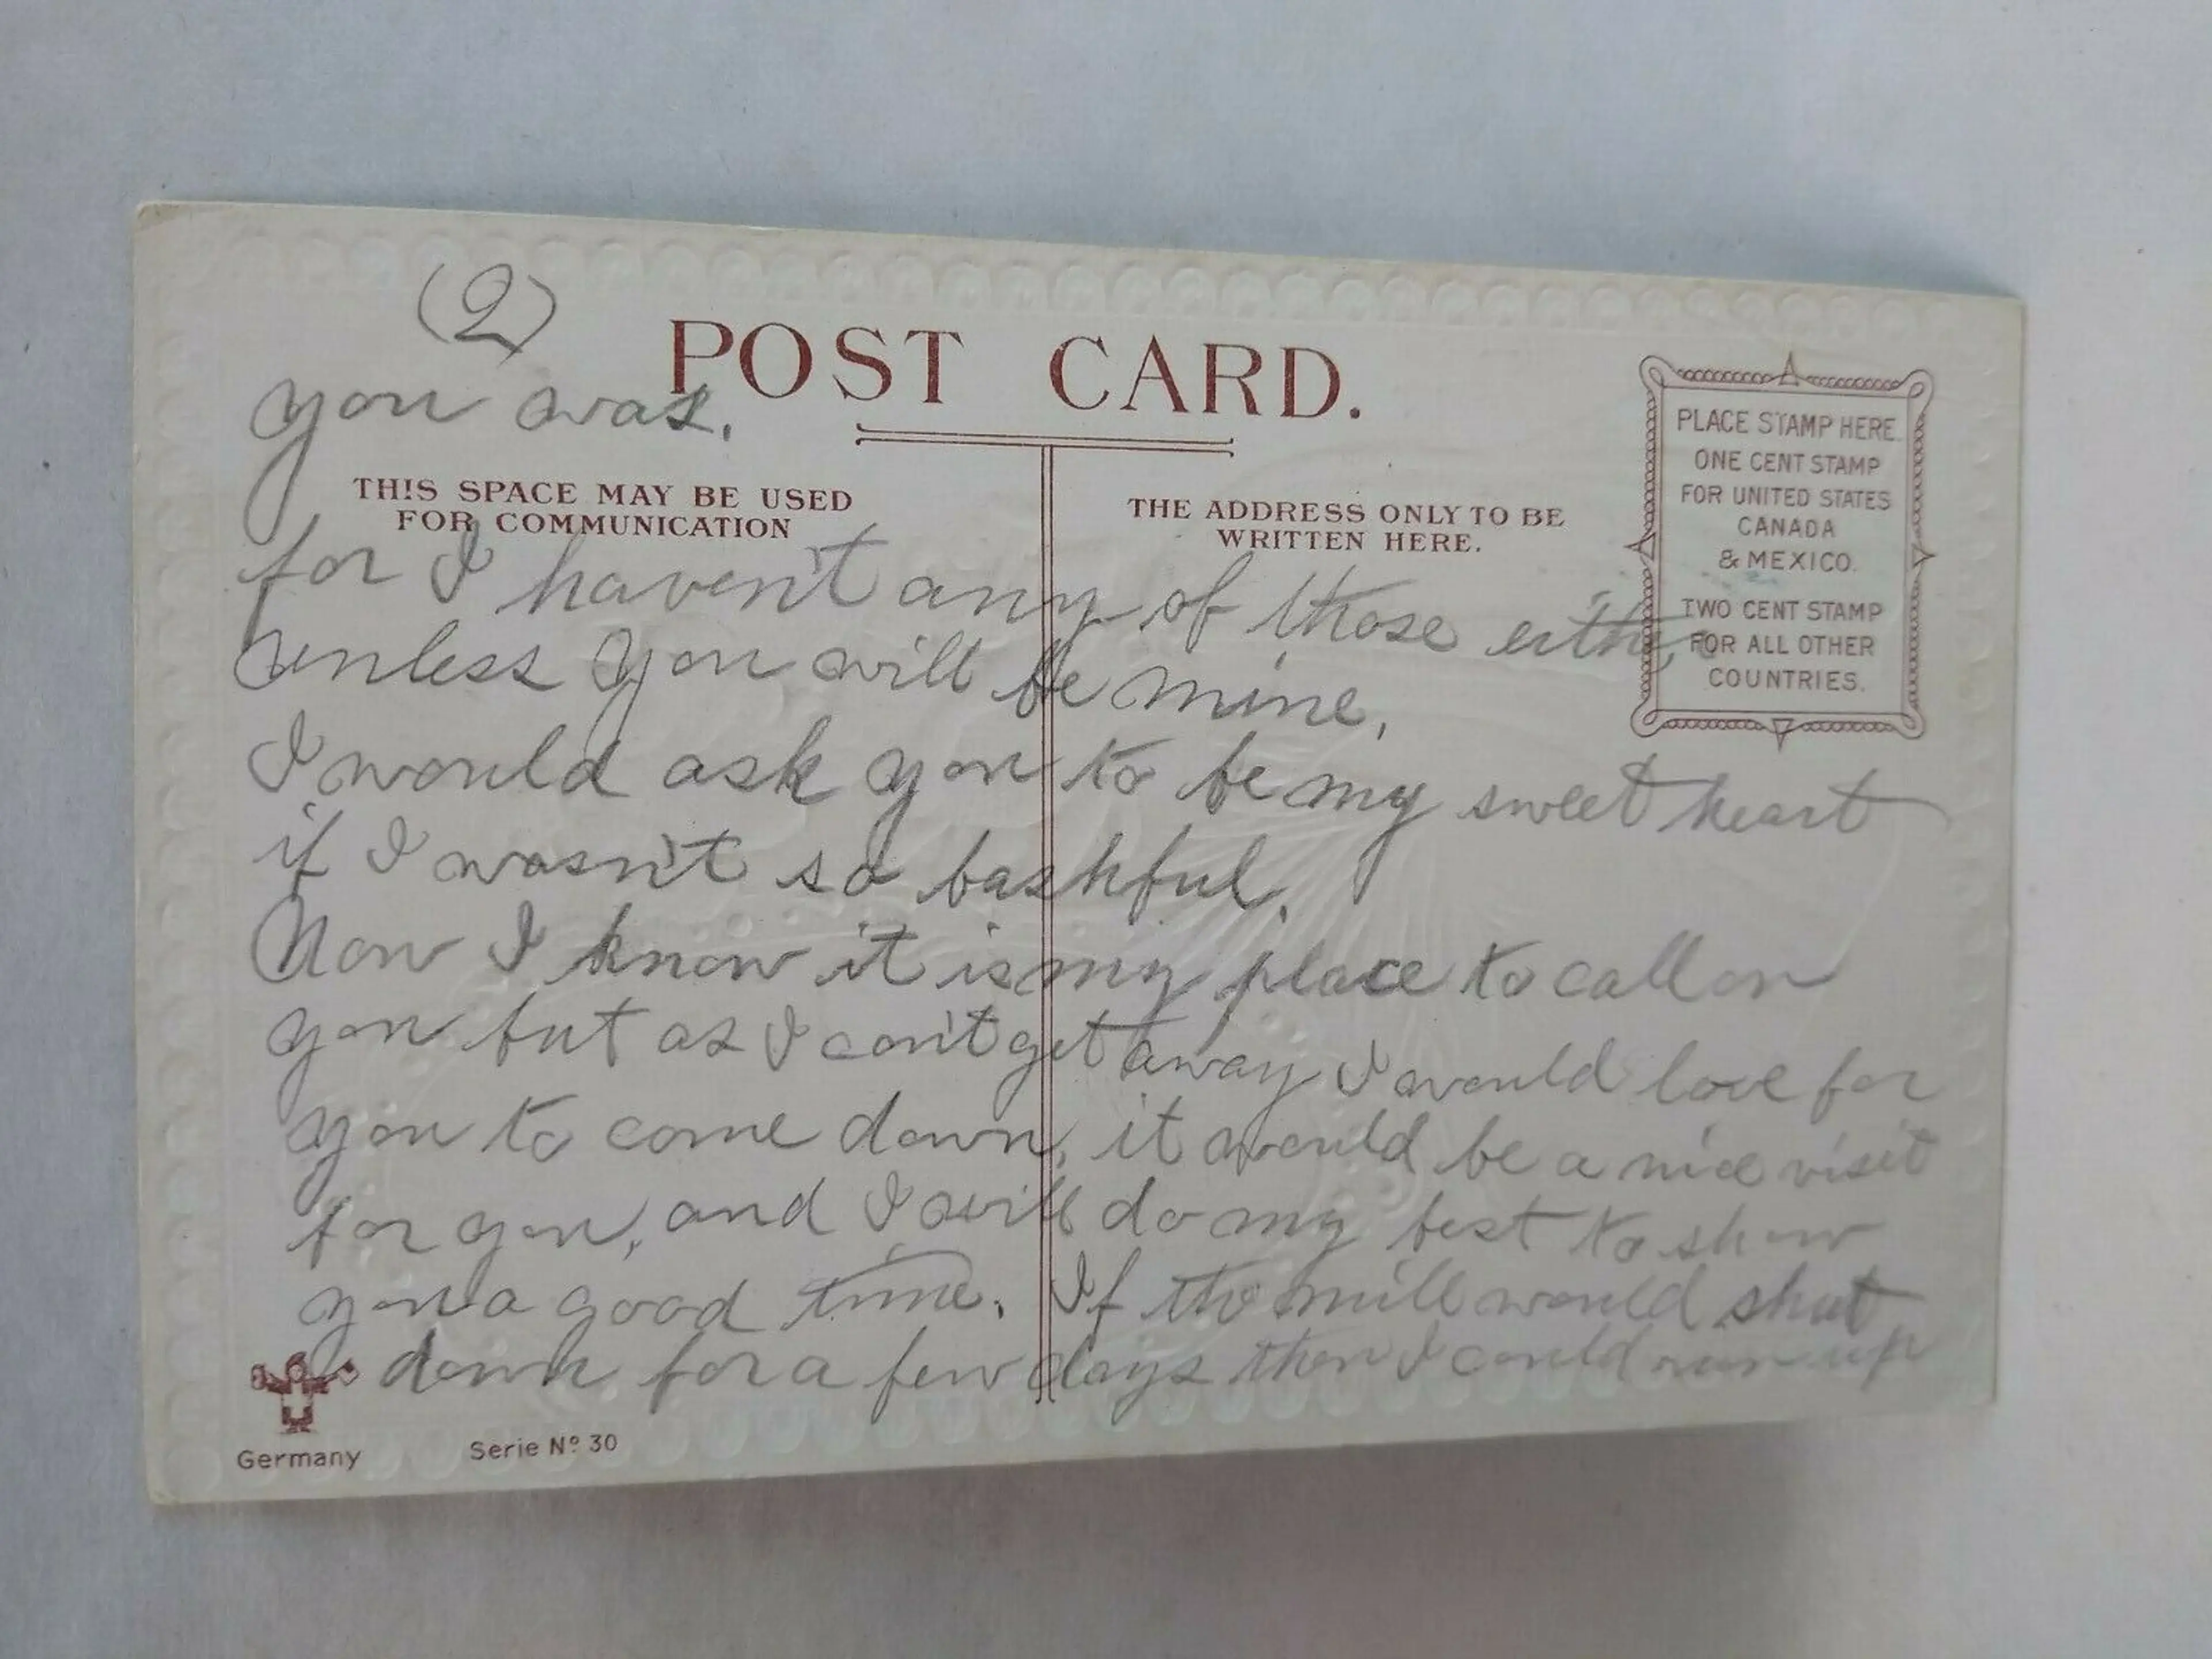 (2)
POST CARD.
you was.
THIS SPACE MAY BE USED
FOR COMMUNICATION
THE ADDRESS ONLY TO BE
WRITTEN HERE.
PLACE STAMP HERE.
ONE CENT STAMP
FOR UNITED STATES
CANADA
& MEXICO.
TWO CENT STAMP
FOR ALL OTHER
COUNTRIES.
for I haven't any of those either
unless you will be mine,
I would ask you to be my sweet heart
if I wasn't so bashful.
Now I know it is my place to call on
you but as I can't get away I would love for
you to come down, it would be a nice visit
for you, and I will do my best to show
you a good time. If the mill would shut
down for a few days then I could run up
Germany
Serie Nº 30